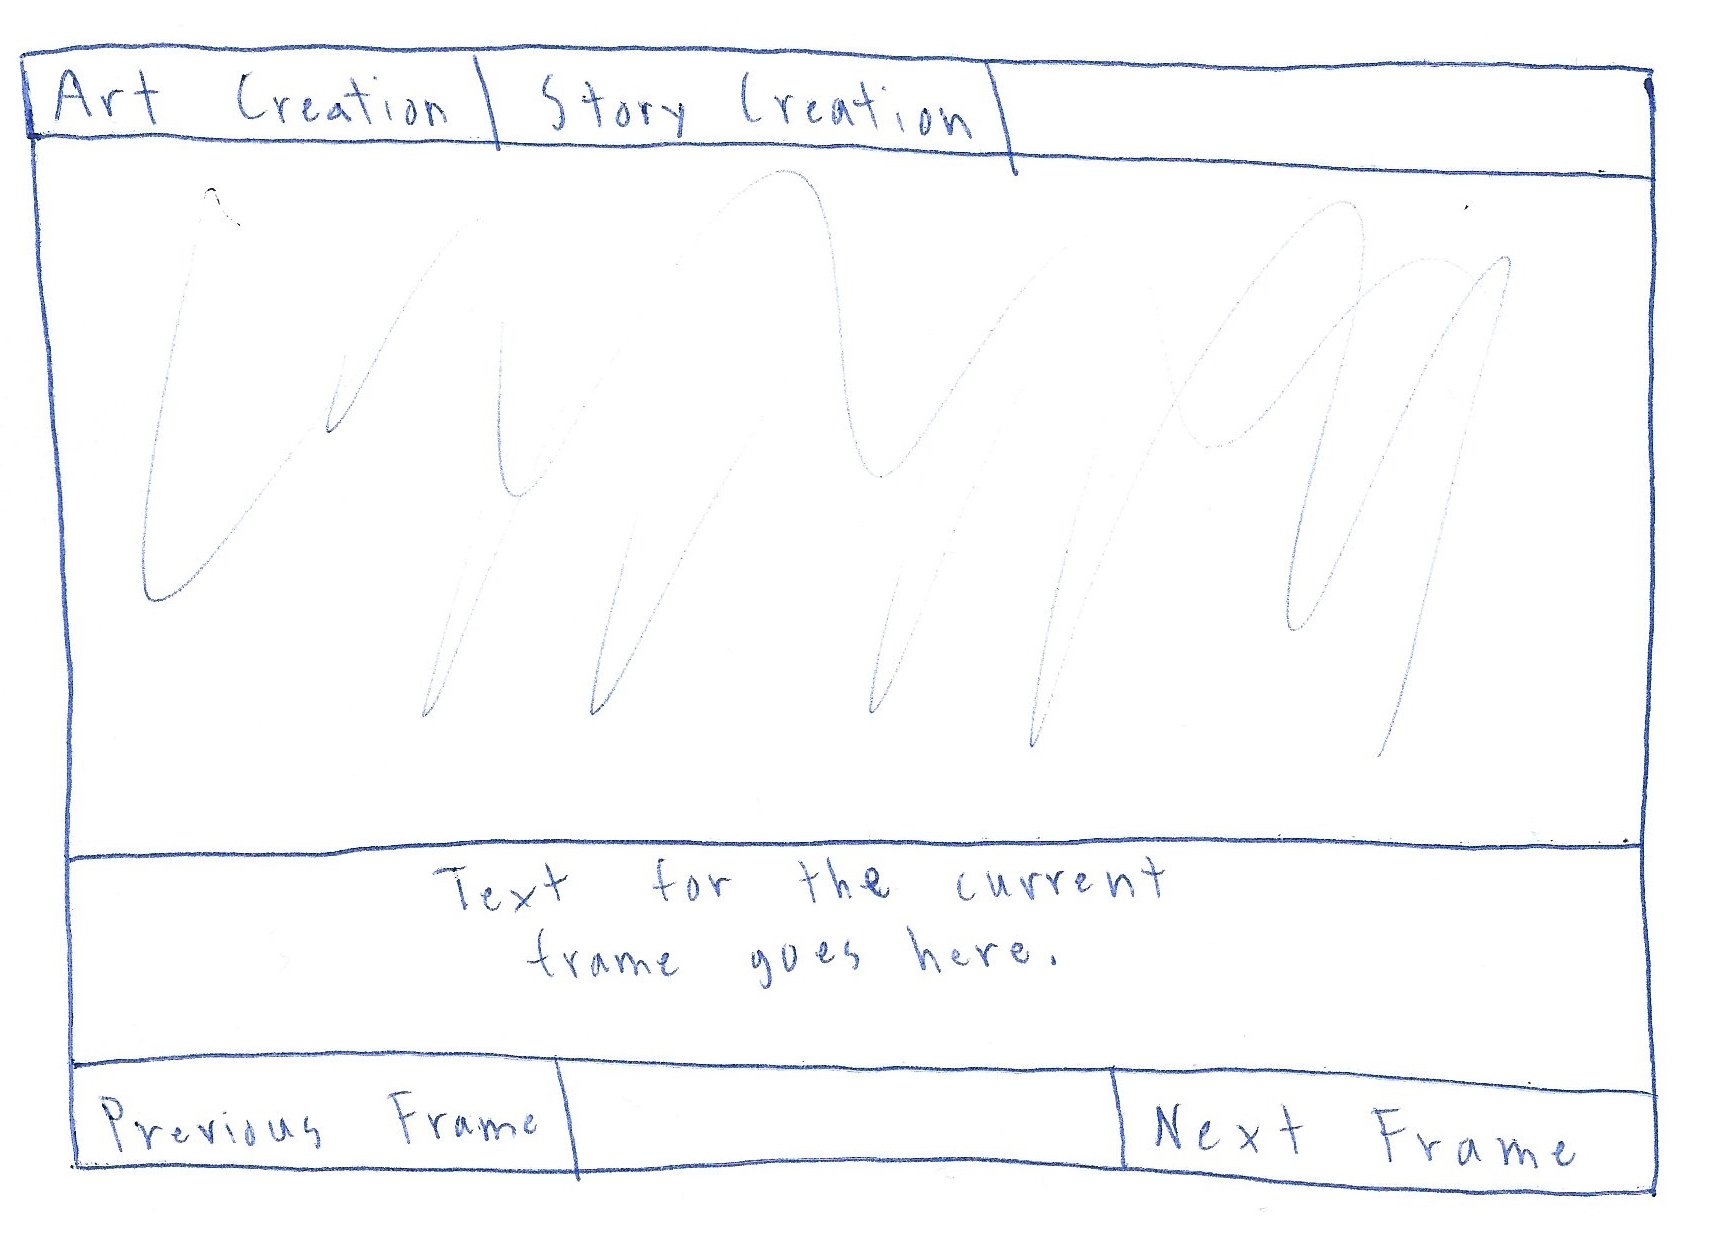 Art Creation
Story Creation
Text for the current
frame goes here.
Previous Frame
Next Frame